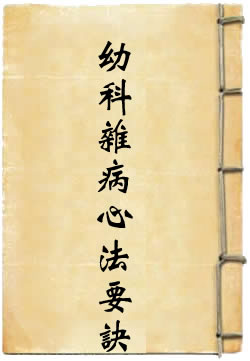 幼科雜病心法要訣